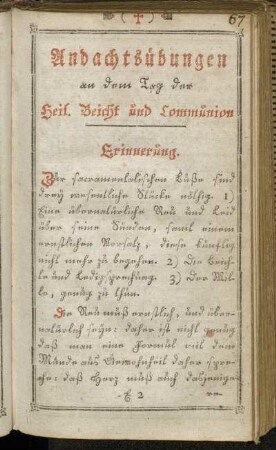 ( † )
67
Andachtsübungen
an dem Tag der
Heil. Beicht und Communion
Erinnerung.
Zur sacramentalischen Buße sind
drey wesentliche Stücke nöthig. 1)
Eine übernatürliche Reu und Leid
über seine Sünden, samt einem
ernstlichen Vorsatz, diese künftig
nicht mehr zu begehen. 2) Die Beich-
te und Ledigsprechung. 3) Der Wil-
le, genug zu thun.
Die Reu muß ernstlich, und über-
natürlich seyn: daher ist nicht genug
daß man eine Formul mit dem
Munde aus Gewohnheit daher spre-
che: daß Herz muß auch dasjenige
E 2
re-